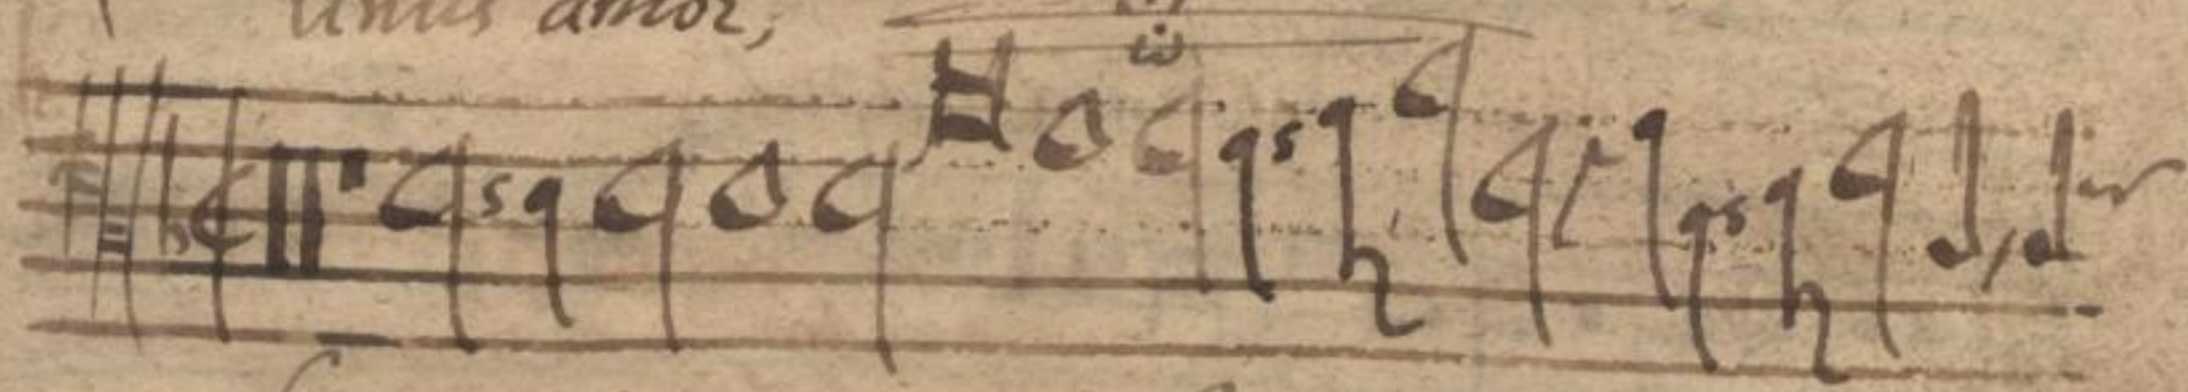 unus amor,